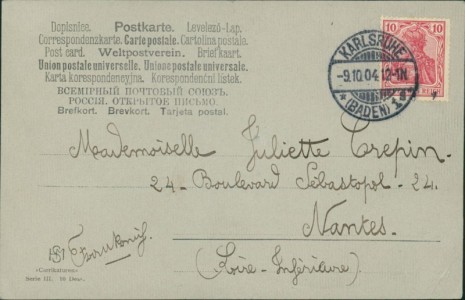 Dopisnice. Postkarte. Levelező-Lap.
Correspondenzkarte. Carte postale. Cartolina postale.
Post card. Weltpostverein. Briefkaart.
Union postale universelle. Unione postale universale.
Karta korespondencyjna. Korespondenční listek.
ВСЕМІРНЫЙ ПОЧТОВЫЙ СОЮЗЪ.
РОССІЯ. ОТКРЫТОЕ ПИСЬМО.
Brefkort. Brevkort. Tarjeta postal.
KARLSRUHE
-9.10.04.12-1N.
(BADEN)
10 10
Mademoiselle Juliette Crepin.
24 - Boulevard Sébastopol - 24.
Nantes.
(Loire-Inférieure)
«Carrikaturen»
Serie III.